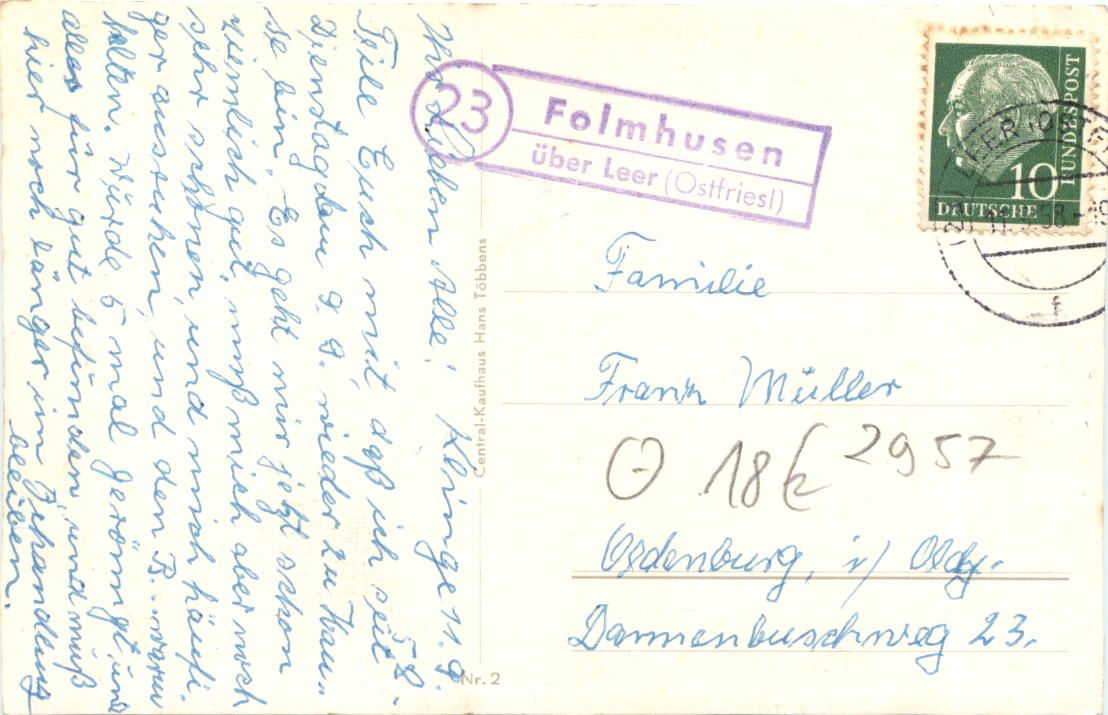 Ihr Lieben Alle! Klinge 11. 9.
58.
Teile Euch mit, daß ich seit
Dienstag den 9. 9. wieder zu Hau-
se bin. Es geht mir jetzt schon
ziemlich gut, muß mich aber noch
sehr schonen, und mich häufi-
ger aussuchen, und den
halten. Würde 5 mal geröngt, und
alles für gut befunden, und muß
hier noch länger in Behandlung
bleiben.
Central-Kaufhaus Hans Többens
Nr. 2
23
Folmhusen
über Leer (Ostfriesl)
DEUTSCHE
BUNDESPOST
10
LEER (OSTF
f
Familie
Franz Müller
18 € 2957
Oldenburg, i/ Oldg.
Dammenbuschweg 23.